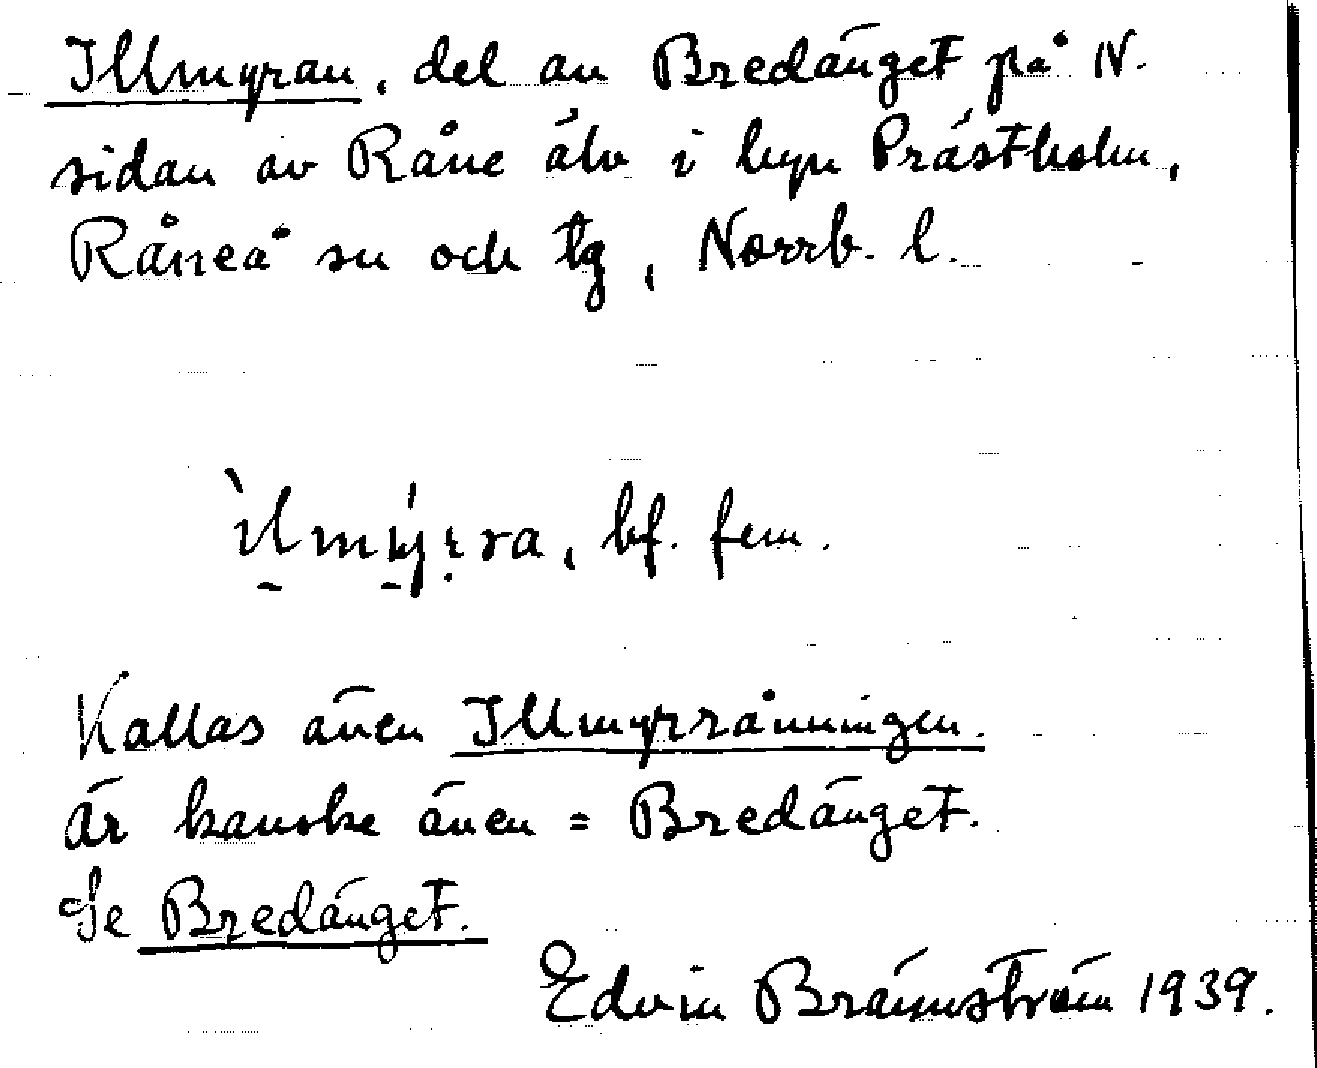 Illmyran, del av Bredänget på N.
sidan av Råne älv i byn Prästholm,
Råneå sn och tg, Norrb. l.
ìlmỵ́ṛra, bf. fem.
Kallas även Illmyrrånningen.
Är kanske även = Bredänget.
Se Bredänget.
Edvin Brännström 1939.